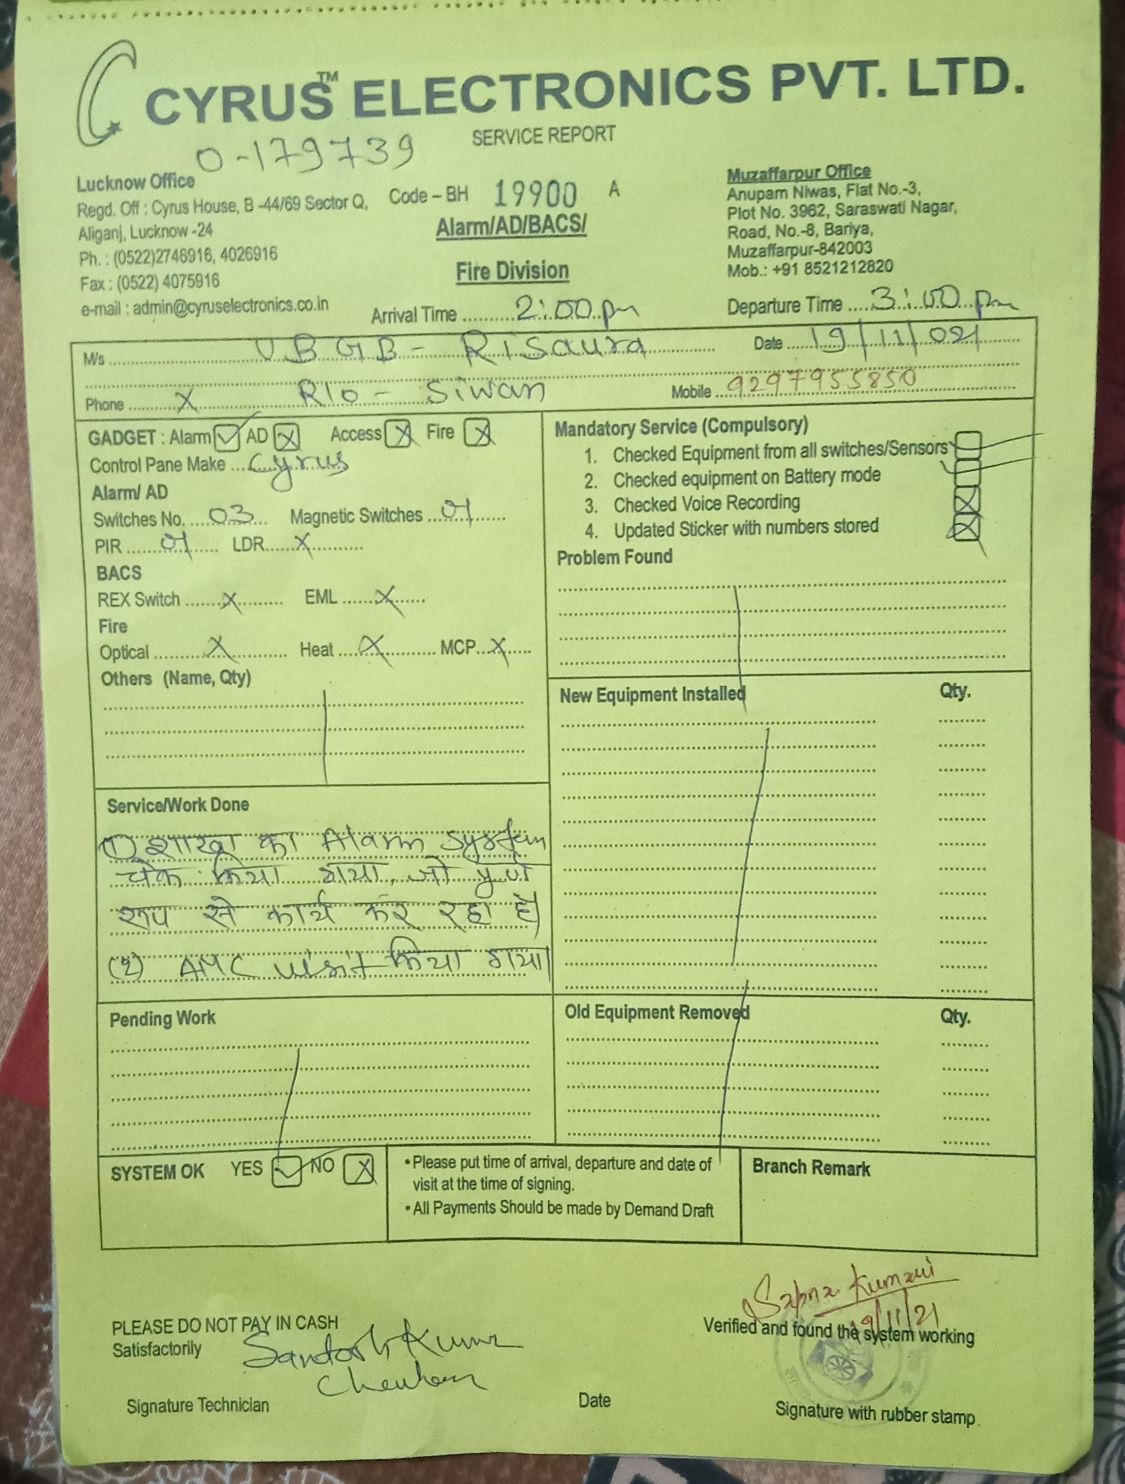 CYRUS™ ELECTRONICS PVT. LTD.
SERVICE REPORT
0-179739
Lucknow Office
Regd. Off : Cyrus House, B -44/69 Sector Q,
Aliganj, Lucknow -24
Ph. : (0522)2746916, 4026916
Fax : (0522) 4075916
e-mail : admin@cyruselectronics.co.in
Code – BH 19900 A
Alarm/AD/BACS/
Fire Division
Muzaffarpur Office
Anupam Niwas, Flat No.-3,
Plot No. 3962, Saraswati Nagar,
Road, No.-8, Bariya,
Muzaffarpur-842003
Mob.: +91 8521212820
Arrival Time 2:00 pm
Departure Time 3:00 pm
M/s UBGB - Risaura
Date 19/11/021
Phone X R/o - Siwan
Mobile 9297955850
GADGET : Alarm ✓ AD X Access X Fire X
Control Pane Make Cyrus
Alarm/ AD
Switches No. 03 Magnetic Switches 01
PIR 01 LDR X
BACS
REX Switch X EML X
Fire
Optical X Heat X MCP X
Others (Name, Qty)
Mandatory Service (Compulsory)
1. Checked Equipment from all switches/Sensors ✓
2. Checked equipment on Battery mode ✓
3. Checked Voice Recording X
4. Updated Sticker with numbers stored X
Problem Found
New Equipment Installed Qty.
Service/Work Done
(1) शाखा का Alarm System
चेक किया गया, जो पूर्ण
रूप से कार्य कर रहा है।
(2) AMC visit किया गया।
Pending Work
Old Equipment Removed Qty.
SYSTEM OK YES ✓ NO X
•Please put time of arrival, departure and date of
visit at the time of signing.
•All Payments Should be made by Demand Draft
Branch Remark
PLEASE DO NOT PAY IN CASH
Satisfactorily
Santosh Kumar
Signature Technician
Date
Sapna Kumari
19/11/21
Verified and found the system working
Signature with rubber stamp